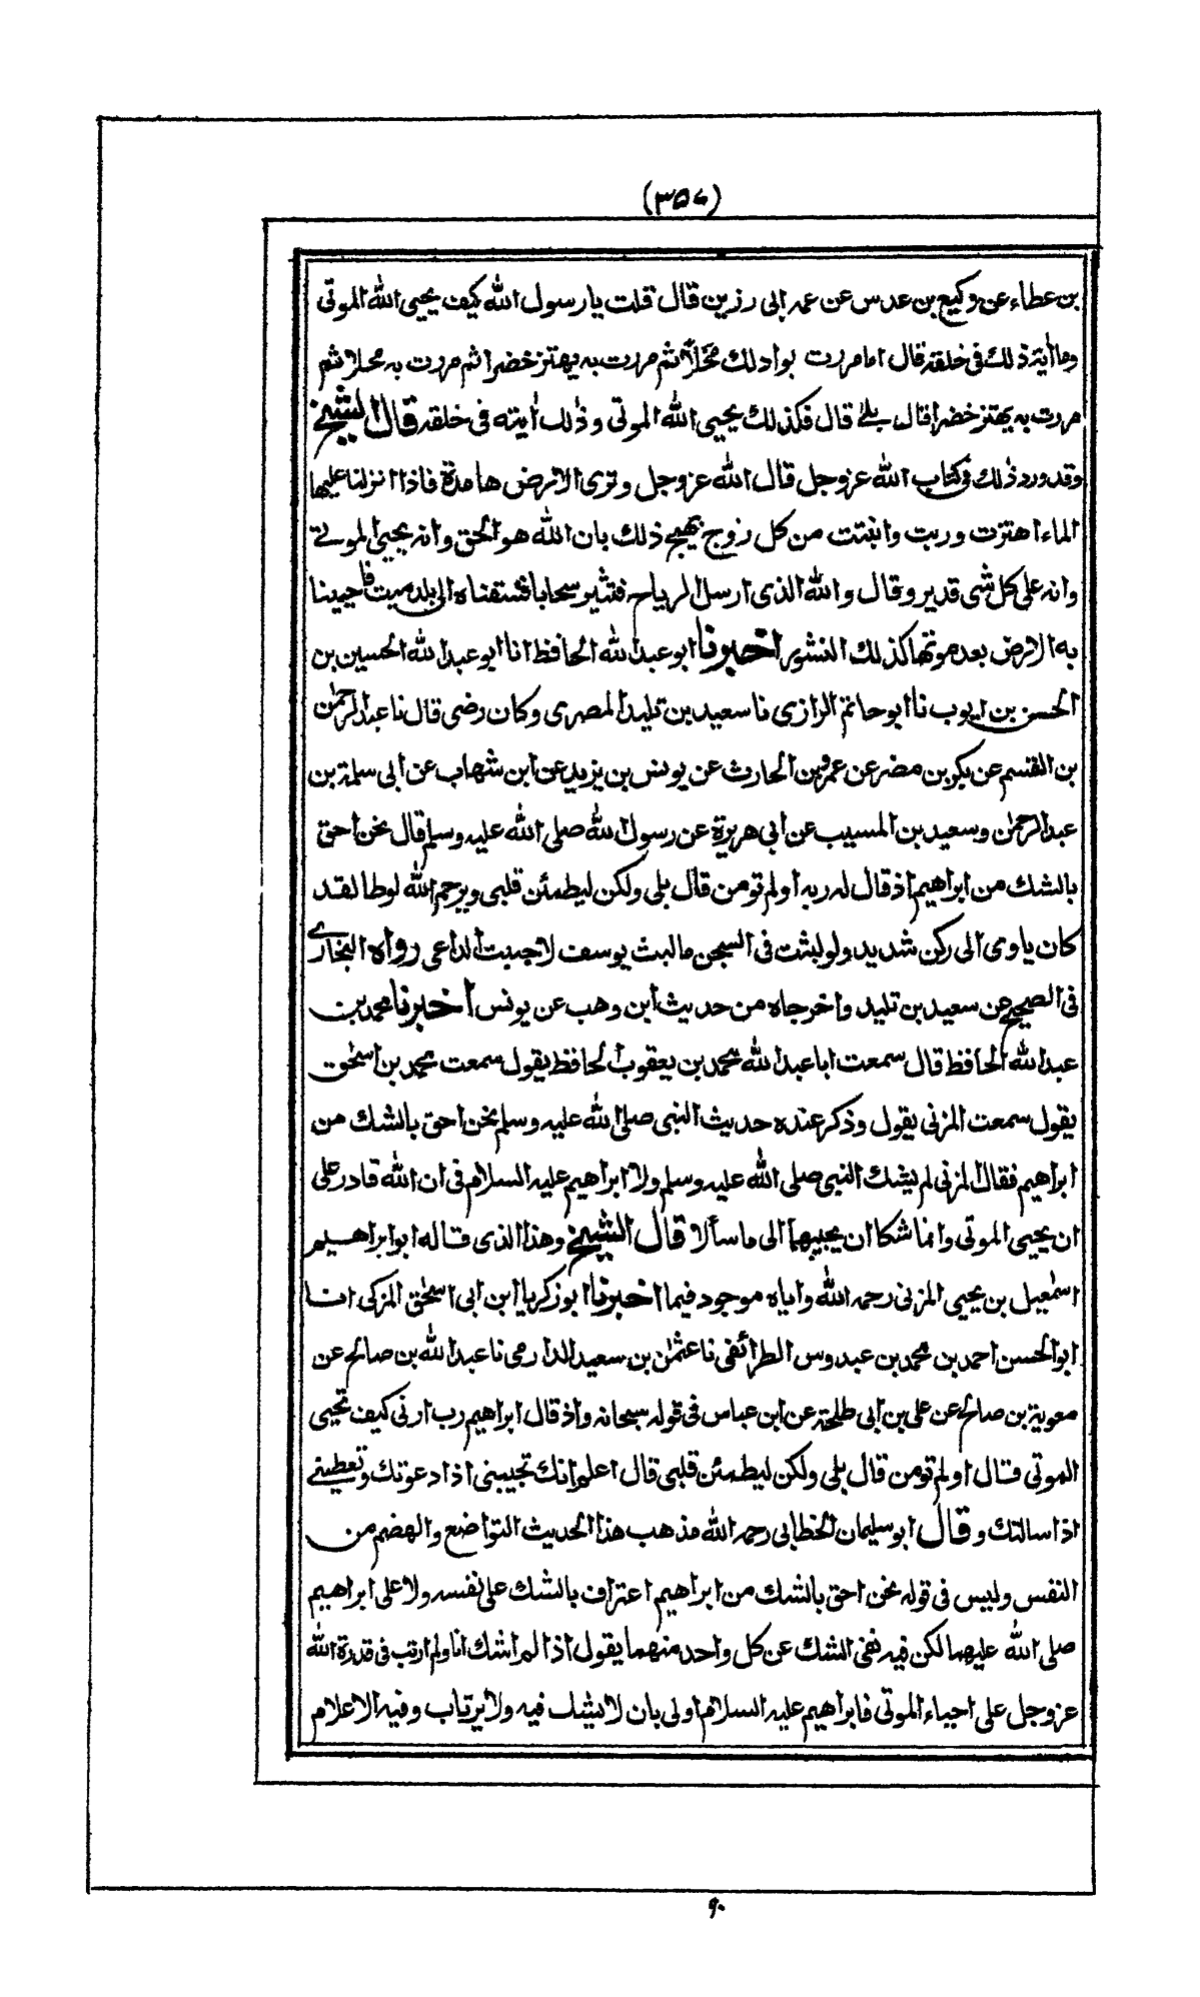 (٣٥٧)
بن عطاء عن وكيع بن عدس عن عمه ابى رزين قال قلت يا رسول الله كيف يحيى الله الموتى
وما أية ذلك فى خلقه قال اما مررت بوادلك محلا ثم مررت به يهتز خضرا ثم مررت به محلا ثم
مررت به يهتز خضرا قال بلى قال فكذلك يحيى الله الموتى وذلك أيته فى خلقه قال الشيخ
وقد ورد ذلك فى كتاب الله عزوجل قال الله عزوجل وترى الارض هامدة فاذا انزلنا عليها
الماء اهتزت وربت وانبتت من كل زوج بهيج ذلك بان الله هو الحق وانه يحيى الموتى
وانه على كل شى قدير وقال والله الذى ارسل الرياح فتثير سحابا فسقناه الى بلد ميت فاحيينا
به الارض بعد موتها كذلك النشور اخبرنا ابو عبد الله الحافظ انا ابو عبد الله الحسين بن
الحسن بن ايوب نا ابو حاتم الرازى نا سعيد بن تليد المصرى وكان رضى قال نا عبد الرحمن
بن القسم عن بكر بن مضر عن عمرو بن الحارث عن يونس بن يزيد عن ابن شهاب عن ابى سلمة بن
عبد الرحمن وسعيد بن المسيب عن ابى هريرة عن رسول الله صلى الله عليه وسلم قال نحن احق
بالشك من ابراهيم اذ قال له ربه اولم تومن قال بلى ولكن ليطمئن قلبى ويرحم الله لوطا لقد
كان ياوى الى ركن شديد ولو لبثت فى السجن ما لبث يوسف لاجبت الداعى رواه البخارى
فى الصحيح عن سعيد بن تليد واخرجاه من حديث ابن وهب عن يونس اخبرنا محمد بن
عبد الله الحافظ قال سمعت ابا عبد الله محمد بن يعقوب الحافظ يقول سمعت محمد بن اسحق
يقول سمعت المزنى يقول وذكر عنده حديث النبى صلى الله عليه وسلم نحن احق بالشك من
ابراهيم فقال المزنى لم يشك النبى صلى الله عليه وسلم ولا ابراهيم عليه السلام فى ان الله قادر على
ان يحيى الموتى وانما شكا ان يجيبهما الى ما سألا قال الشيخ وهذا الذى قاله ابو ابراهيم
اسمعيل بن يحيى المزنى رحمه الله واياه موجود فيما اخبرنا ابو زكريا ابن ابى اسحق المزكى انا
ابو الحسن احمد بن محمد بن عبدوس الطرائفى نا عثمن بن سعيد الدارمى نا عبد الله بن صالح عن
معوية بن صالح عن على بن ابى طلحة عن ابن عباس فى قوله سبحانه واذ قال ابراهيم رب ارنى كيف تحيى
الموتى قال اولم تومن قال بلى ولكن ليطمئن قلبى قال اعلم انك تجيبنى اذا دعوتك وتعطينى
اذا سالتك وقال ابو سليمان الخطابى رحمه الله مذهب هذا الحديث التواضع والهضم من
النفس وليس فى قوله نحن احق بالشك من ابراهيم اعتراف بالشك على نفسه ولا على ابراهيم
صلى الله عليهما لكن فيه نفى الشك عن كل واحد منهما يقول اذا لم اشك انا ولم ارتب فى قدرة الله
عزوجل على احياء الموتى فابراهيم عليه السلام اولى بان لا يشك فيه ولا يرتاب وفيه الاعلام
٩٠